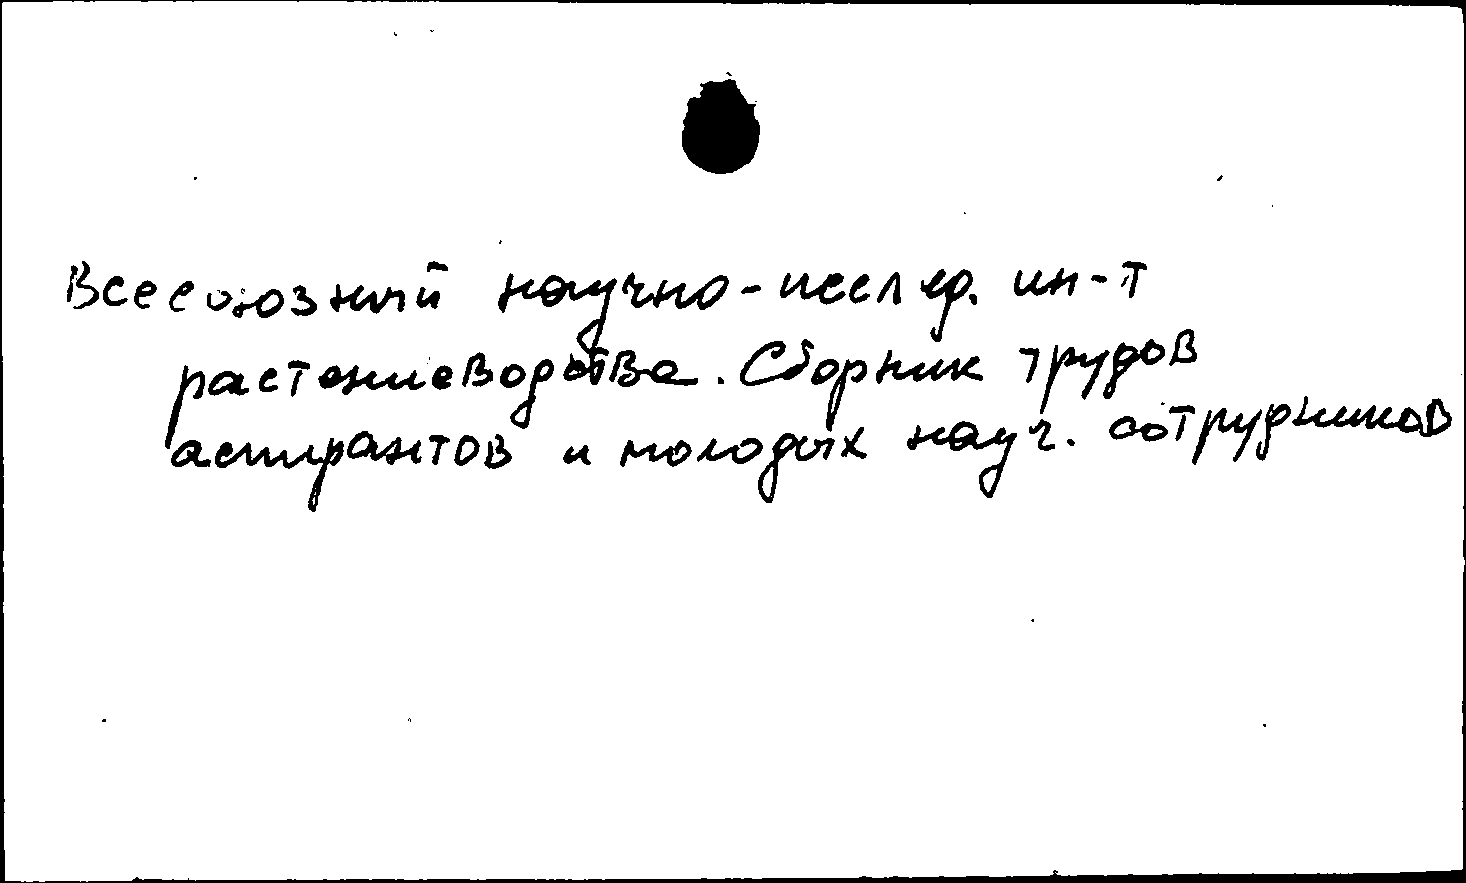 Всесоюзный научно-исслед. ин-т
растениеводства. Сборник трудов
аспирантов и молодых науч. сотрудников